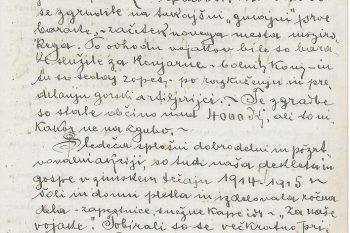 se zgradile na tukajšni „gmajni" prve
barake, – začetek novega mesta
krya. Po odhodu vojakov bile so bara-
ke služile za konjarne – bolnih konj – in
tu so sedaj zopet, – po razkuženju in pre-
delanju gorski artiljerijci. – Te zgradbe
so stale občino nad 4000 K, ali to
kakor ne na zgubo. –
Sledeča splošni dobrodelni in požrt-
vovalni akciji, so tudi naša dekleta in
gospe v zimskem tečaju 1914–1915 v
šoli in doma pletla in izdelovala ročna
dela – zapestnice snežne kape itd – „za naše
vojake". Nabirali so se večkratno pri